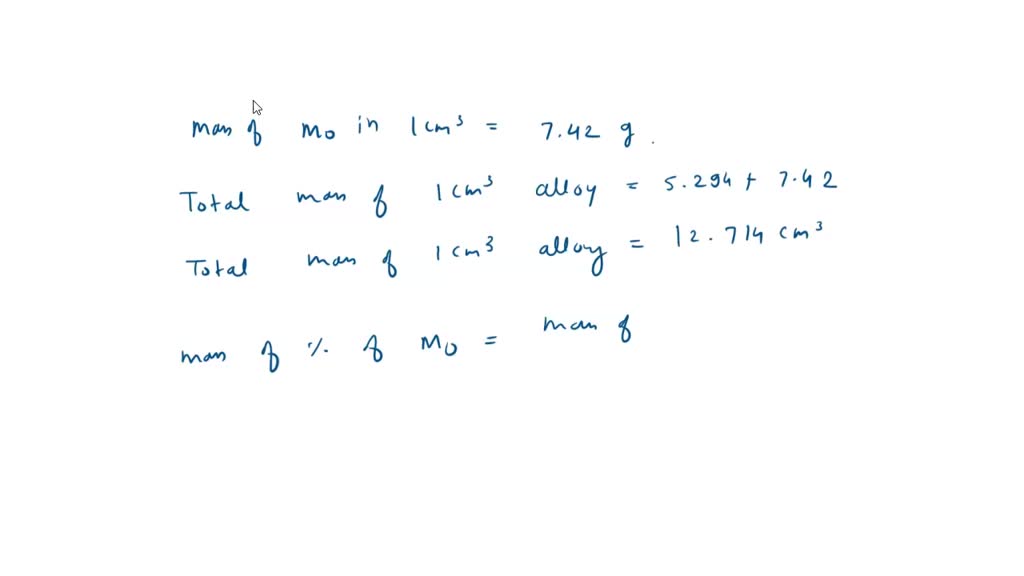 mass of Mo in 1 cm³ = 7.42 g.
Total mass of 1 cm³ alloy = 5.294 + 7.42
Total mass of 1 cm³ alloy = 12.714 cm³
mass of % of Mo = mass of